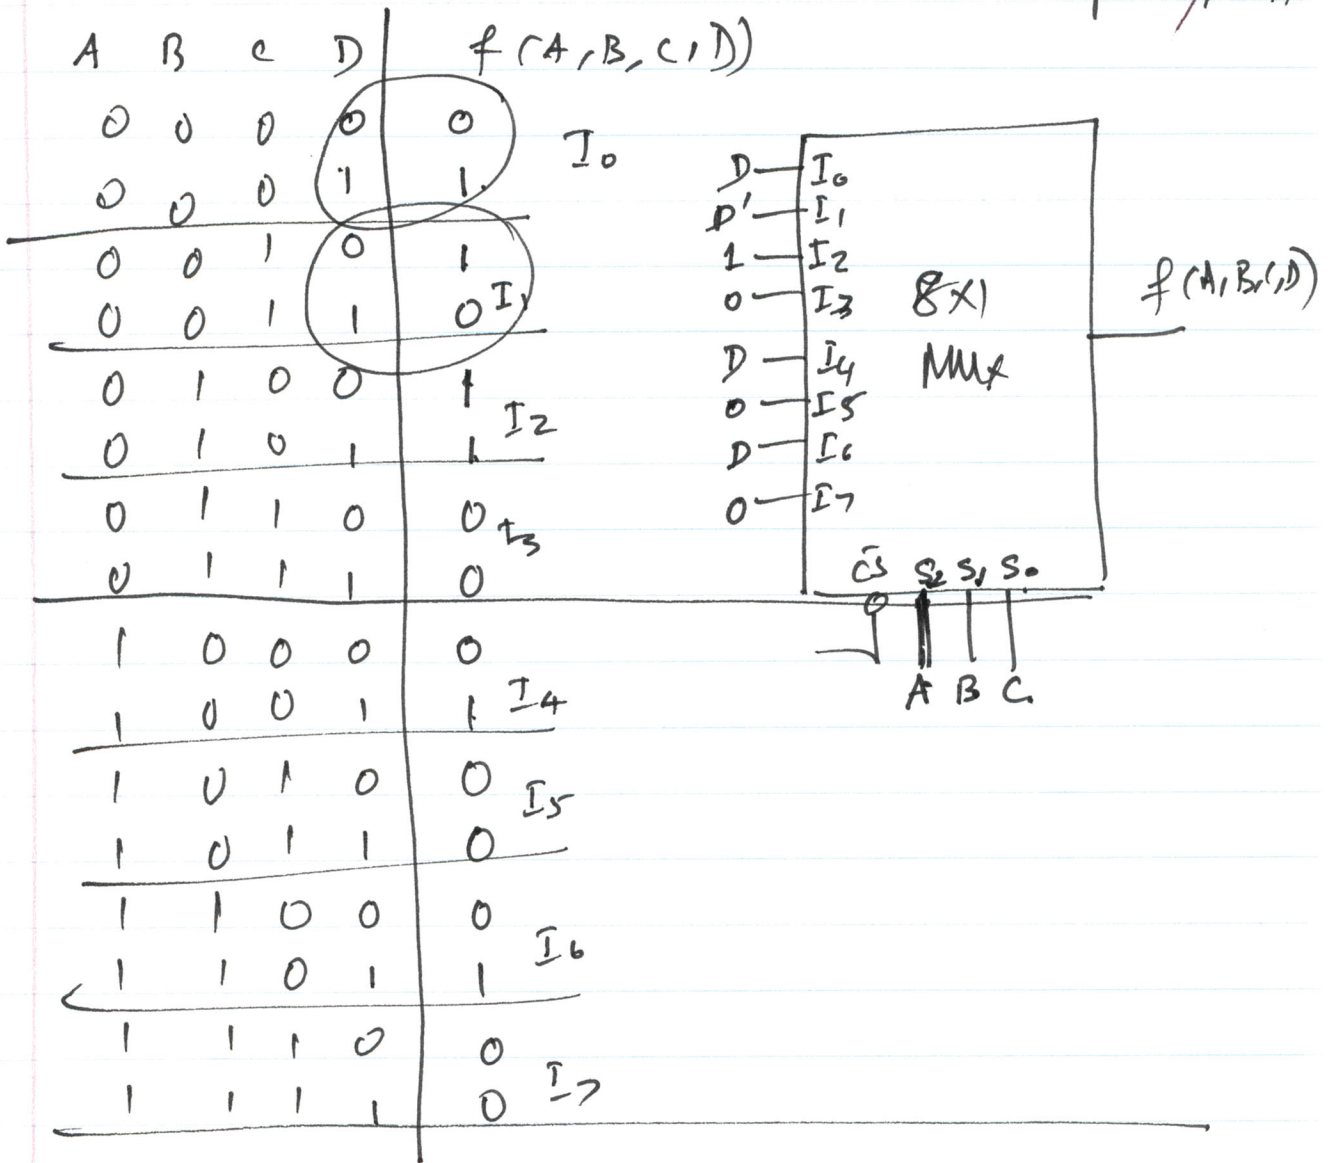 A B C D f(A,B,C,D)
0 0 0 0 0 I0
0 0 0 1 1
0 0 1 0 1
0 0 1 1 0 I1
0 1 0 0 1
I2
0 1 0 1 1
0 1 1 0 0
I3
0 1 1 1 0
1 0 0 0 0
1 0 0 1 1 I4
1 0 1 0 0
I5
1 0 1 1 0
1 1 0 0 0
I6
1 1 0 1 1
1 1 1 0 0
I7
1 1 1 1 0
D I0
D' I1
1 I2
0 I3
D I4
0 I5
D I6
0 I7
8x1
Mux
f(A,B,C,D)
C̄S̄ S2 S1 S0
A B C